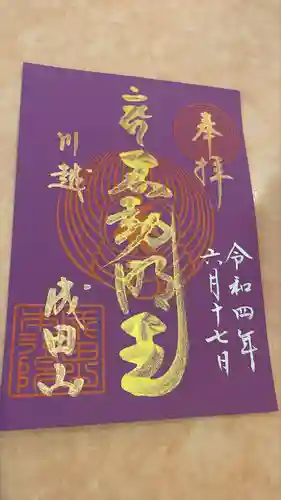 奉拝
令和四年
六月十七日
帝不動明王
川越
成田山